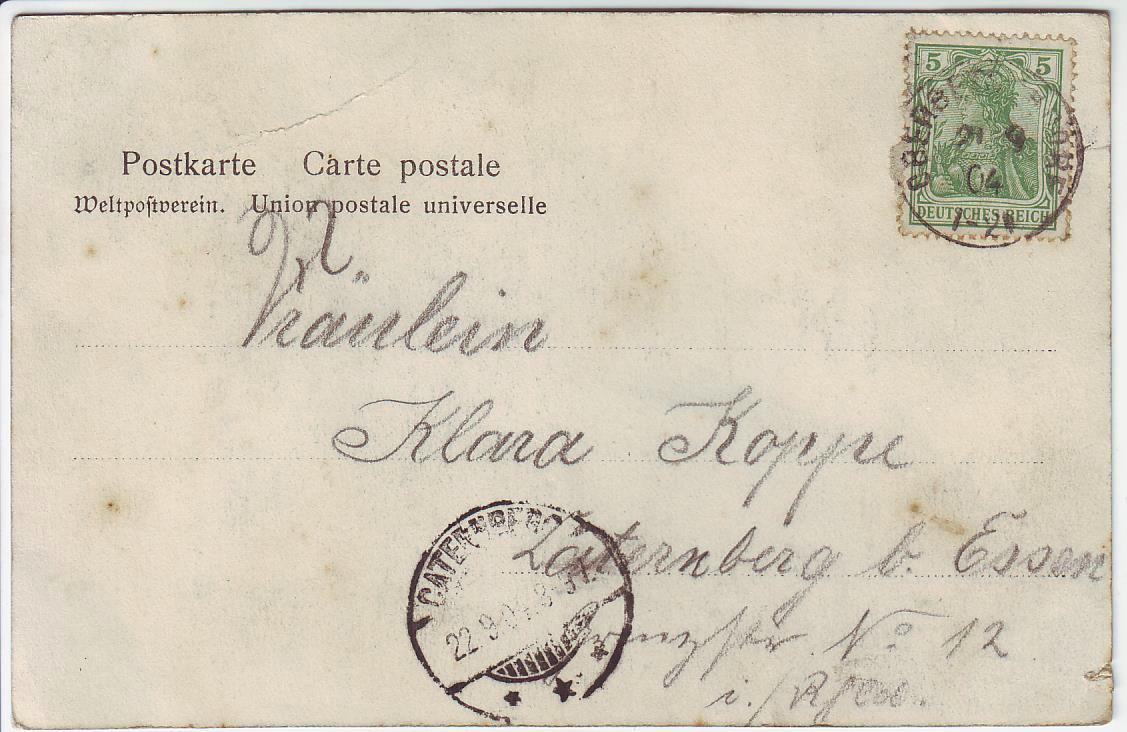 5 5
21 9
04
DEUTSCHES REICH
Postkarte Carte postale
Weltpostverein. Union postale universelle
Fräulein
Klara Koppe
CATERNBERG
Caternberg b. Essen
22.9.04.
No 12
i./